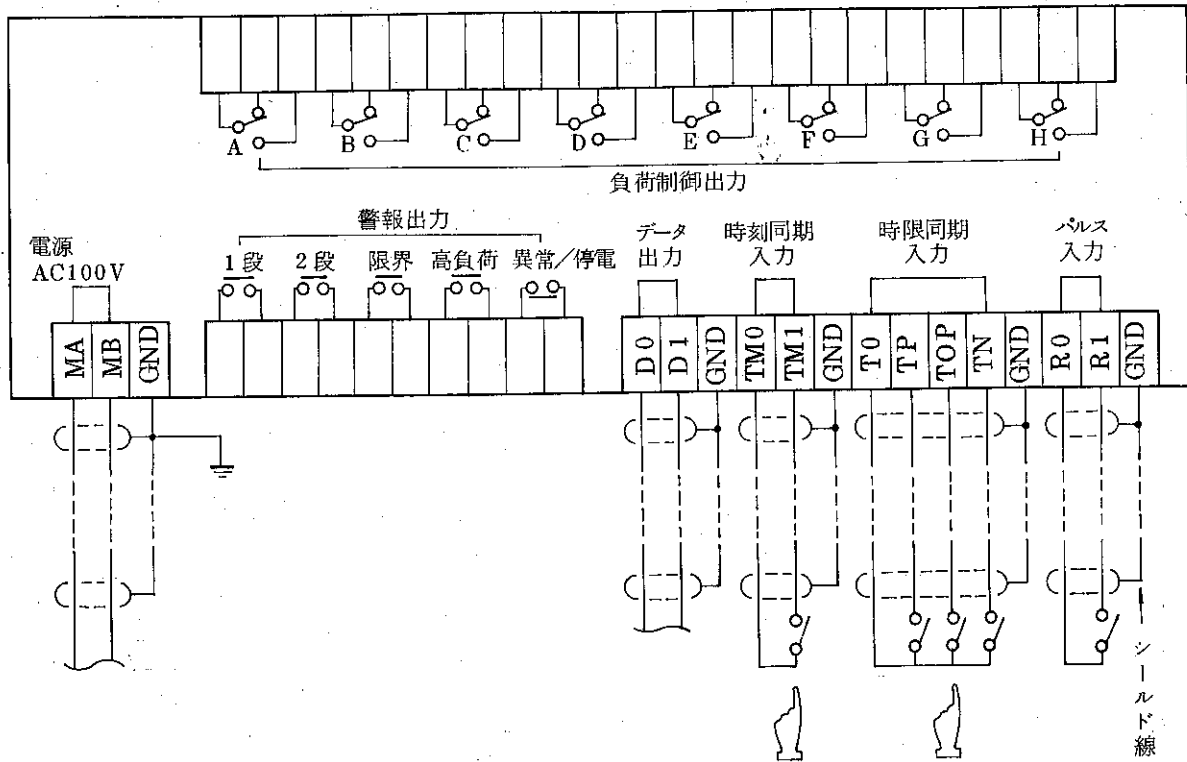 A B C D E F G H
負荷制御出力
警報出力
電源
AC100V
1段 2段 限界 高負荷 異常/停電
データ
出力
時刻同期
入力
時限同期
入力
パルス
入力
MA MB GND
D0 D1 GND TM0 TM1 GND T0 TP TOP TN GND R0 R1 GND
シールド線